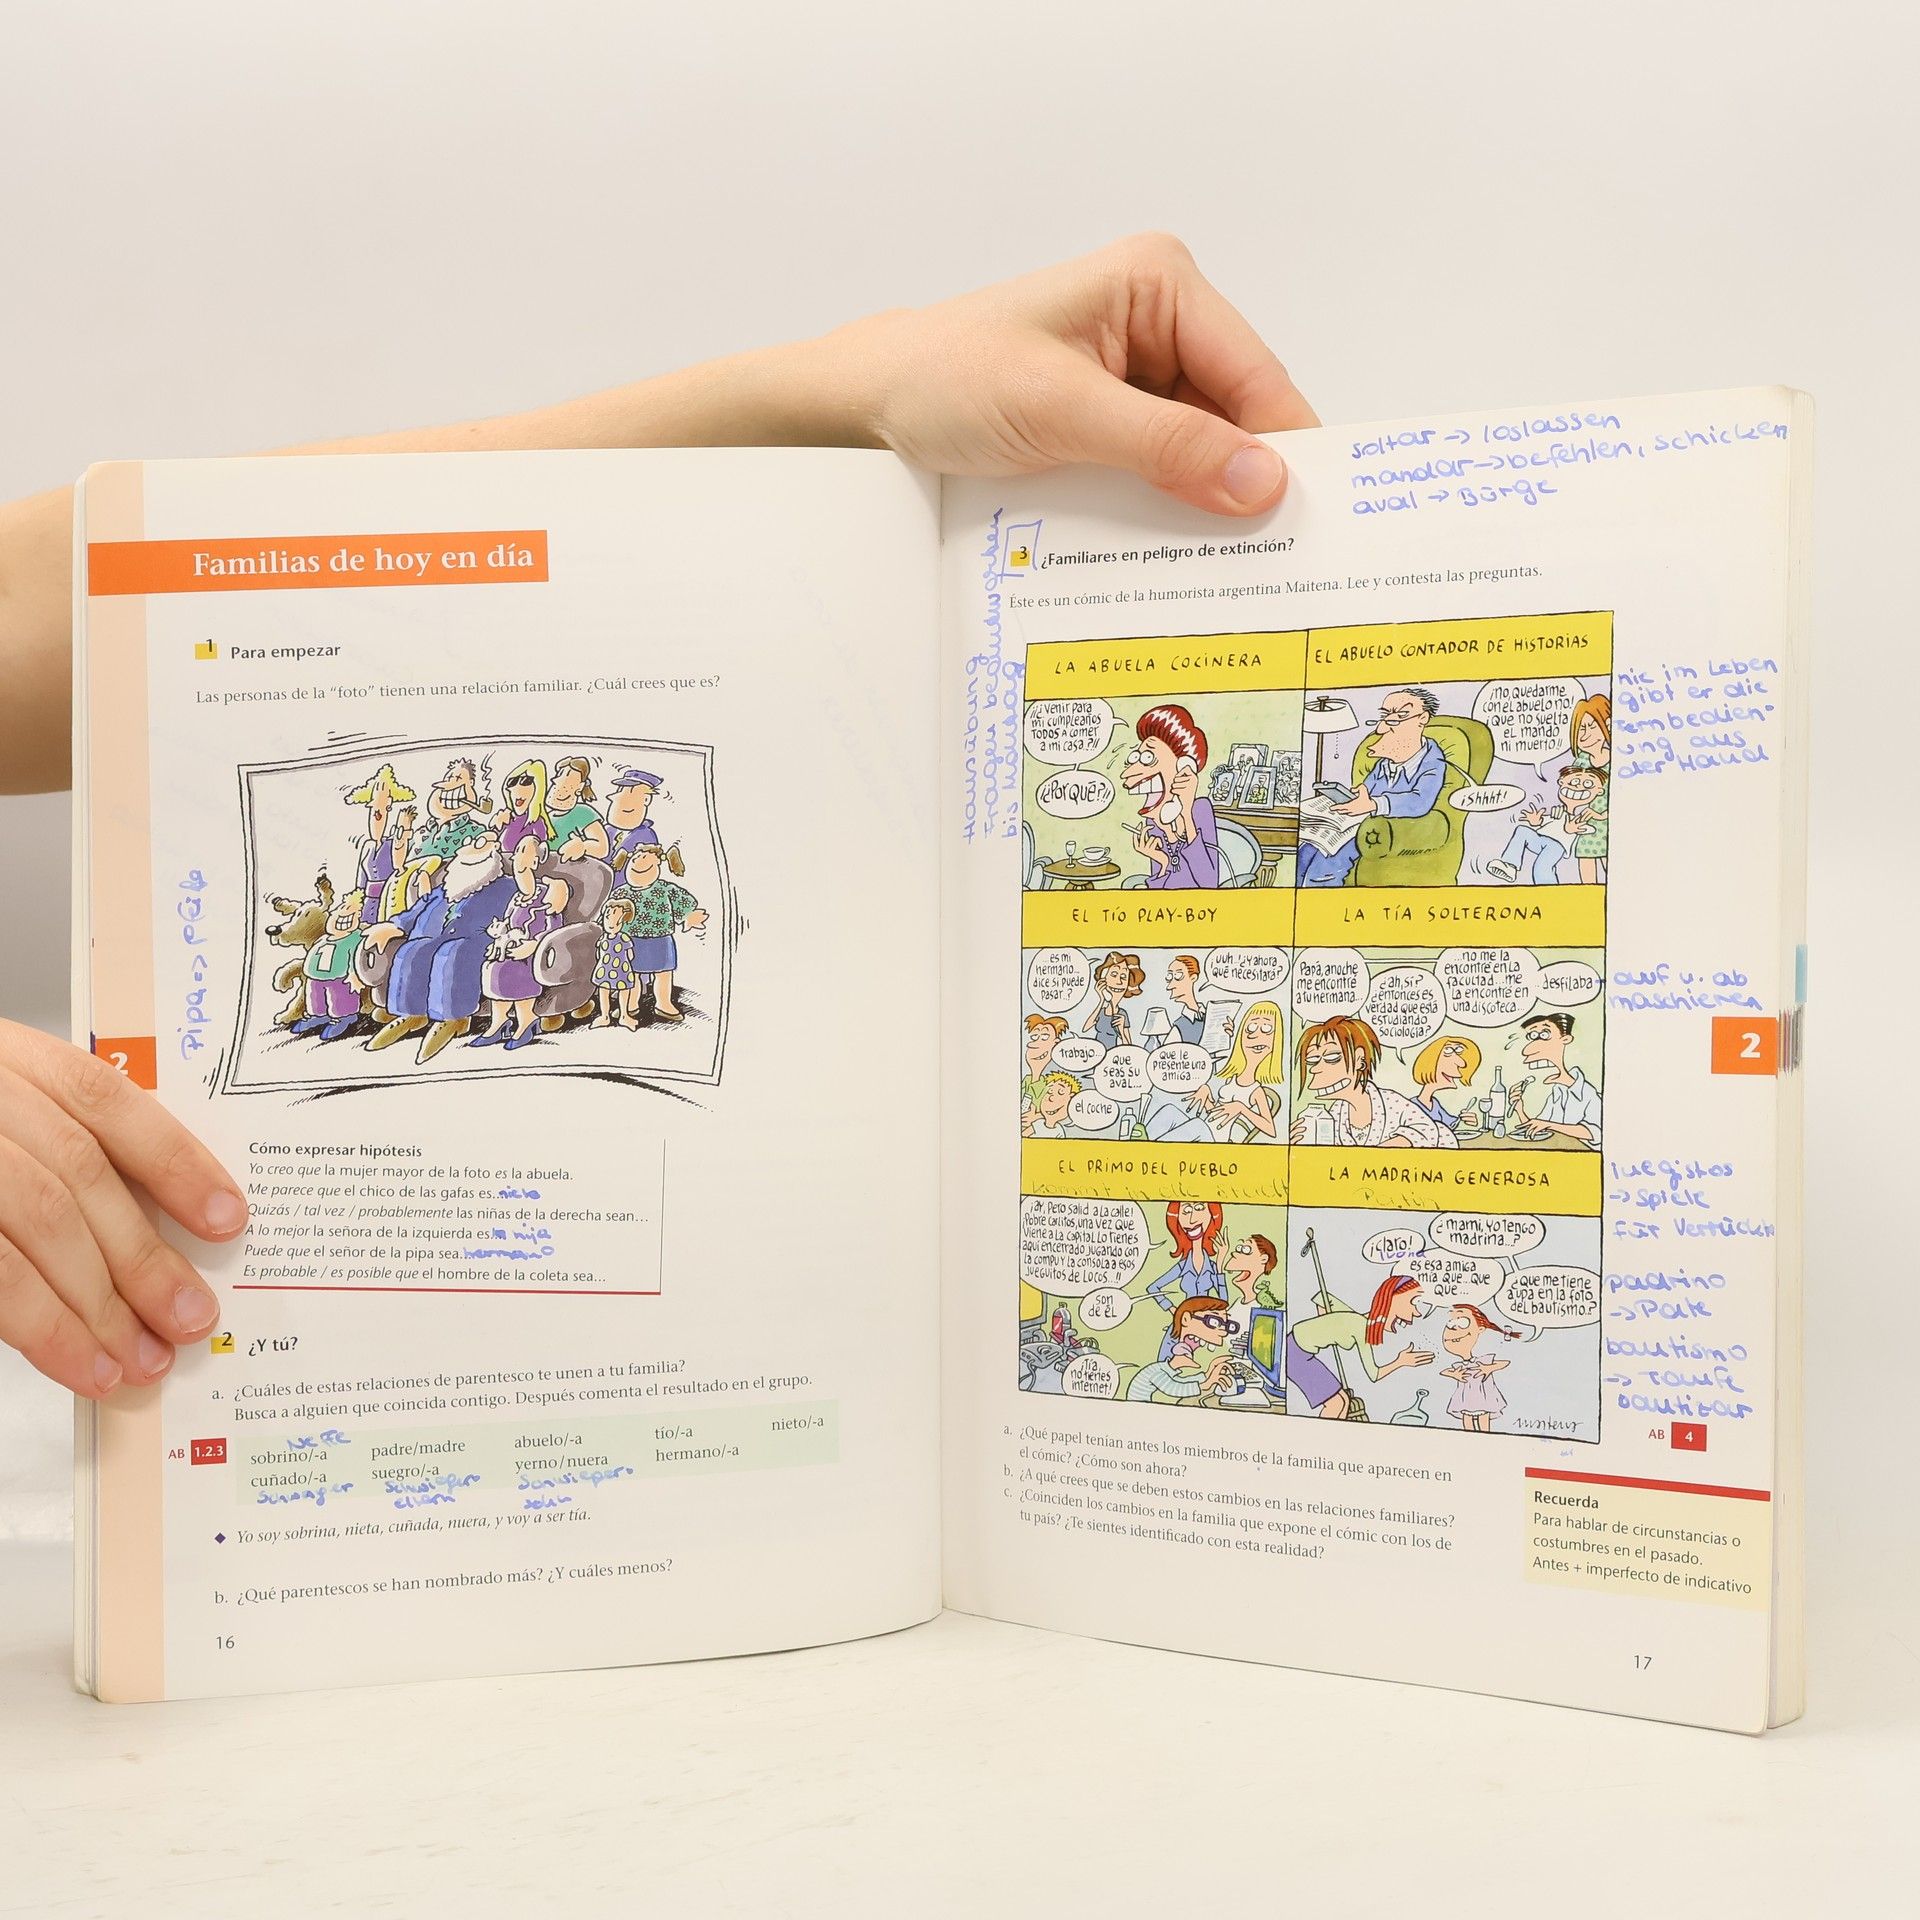 Familias de hoy en día
1 Para empezar
Las personas de la "foto" tienen una relación familiar. ¿Cuál crees que es?
Pipa => Pfeife
1
2
Cómo expresar hipótesis
Yo creo que la mujer mayor de la foto es la abuela.
Me parece que el chico de las gafas es...nieto
Quizás / tal vez / probablemente las niñas de la derecha sean...
A lo mejor la señora de la izquierda es la hija
Puede que el señor de la pipa sea hermano
Es probable / es posible que el hombre de la coleta sea...
2 ¿Y tú?
a. ¿Cuáles de estas relaciones de parentesco te unen a tu familia?
Busca a alguien que coincida contigo. Después comenta el resultado en el grupo.
Neffe
AB 1.2.3
sobrino/-a padre/madre abuelo/-a tío/-a nieto/-a
cuñado/-a suegro/-a yerno/nuera hermano/-a
Schwager
eltern
◆ Yo soy sobrina, nieta, cuñada, nuera, y voy a ser tía.
b. ¿Qué parentescos se han nombrado más? ¿Y cuáles menos?
16
soltar -> loslassen
mandar -> befehlen, schicken
aval -> Bürge
Hausübung
Fragen beantworten
bis Montag
3 ¿Familiares en peligro de extinción?
Éste es un cómic de la humorista argentina Maitena. Lee y contesta las preguntas.
LA ABUELA COCINERA
¡¿Venir para
mi cumpleaños
TODOS A comer
a mi casa?!!
¡¿Por qué?!!
EL ABUELO CONTADOR DE HISTORIAS
¡no, quedarme
con el abuelo no!
¡Que no suelta
el mando
ni muerto!!
¡Shhht!
nie im Leben
gibt er die
Fernbedien-
ung aus
der Hand
EL TÍO PLAY-BOY
...es mi
hermano...
dice si puede
pasar..?
¡uuh..! ¿y ahora
qué necesitará?
Trabajo...
Que
seas su
aval...
Que le
presente una
amiga...
el coche
LA TÍA SOLTERONA
Papá, anoche
me encontré
a tu hermana...
¿ah, sí?
¿entonces es
verdad que está
estudiando
sociología?
...no me la
encontré en la
facultad...me
la encontré en
una discoteca...
..desfilaba
auf u. ab
maschieren
2
EL PRIMO DEL PUEBLO
kommt in die Stadt
¡ay, pero salid a la calle!
¡Pobre Carlitos, una vez que
viene a la capital lo tienes
aquí encerrado jugando con
la compu y la consola a esos
jueguitos de locos...!!
son
de él
¡Tía,
no tienes
internet!
LA MADRINA GENEROSA
Patin
¿mami, yo tengo
madrina...?
¡claro!
es esa amiga
mía que.. que
que...
¿que me tiene
aupa en la foto
del bautismo..?
maitena
juegistos
-> Spiele
für Verrückte
padrino
-> Pate
bautismo
-> Taufe
bautizar
AB 4
a. ¿Qué papel tenían antes los miembros de la familia que aparecen en
el cómic? ¿Cómo son ahora?
b. ¿A qué crees que se deben estos cambios en las relaciones familiares?
c. ¿Coinciden los cambios en la familia que expone el cómic con los de
tu país? ¿Te sientes identificado con esta realidad?
Recuerda
Para hablar de circunstancias o
costumbres en el pasado.
Antes + imperfecto de indicativo
17